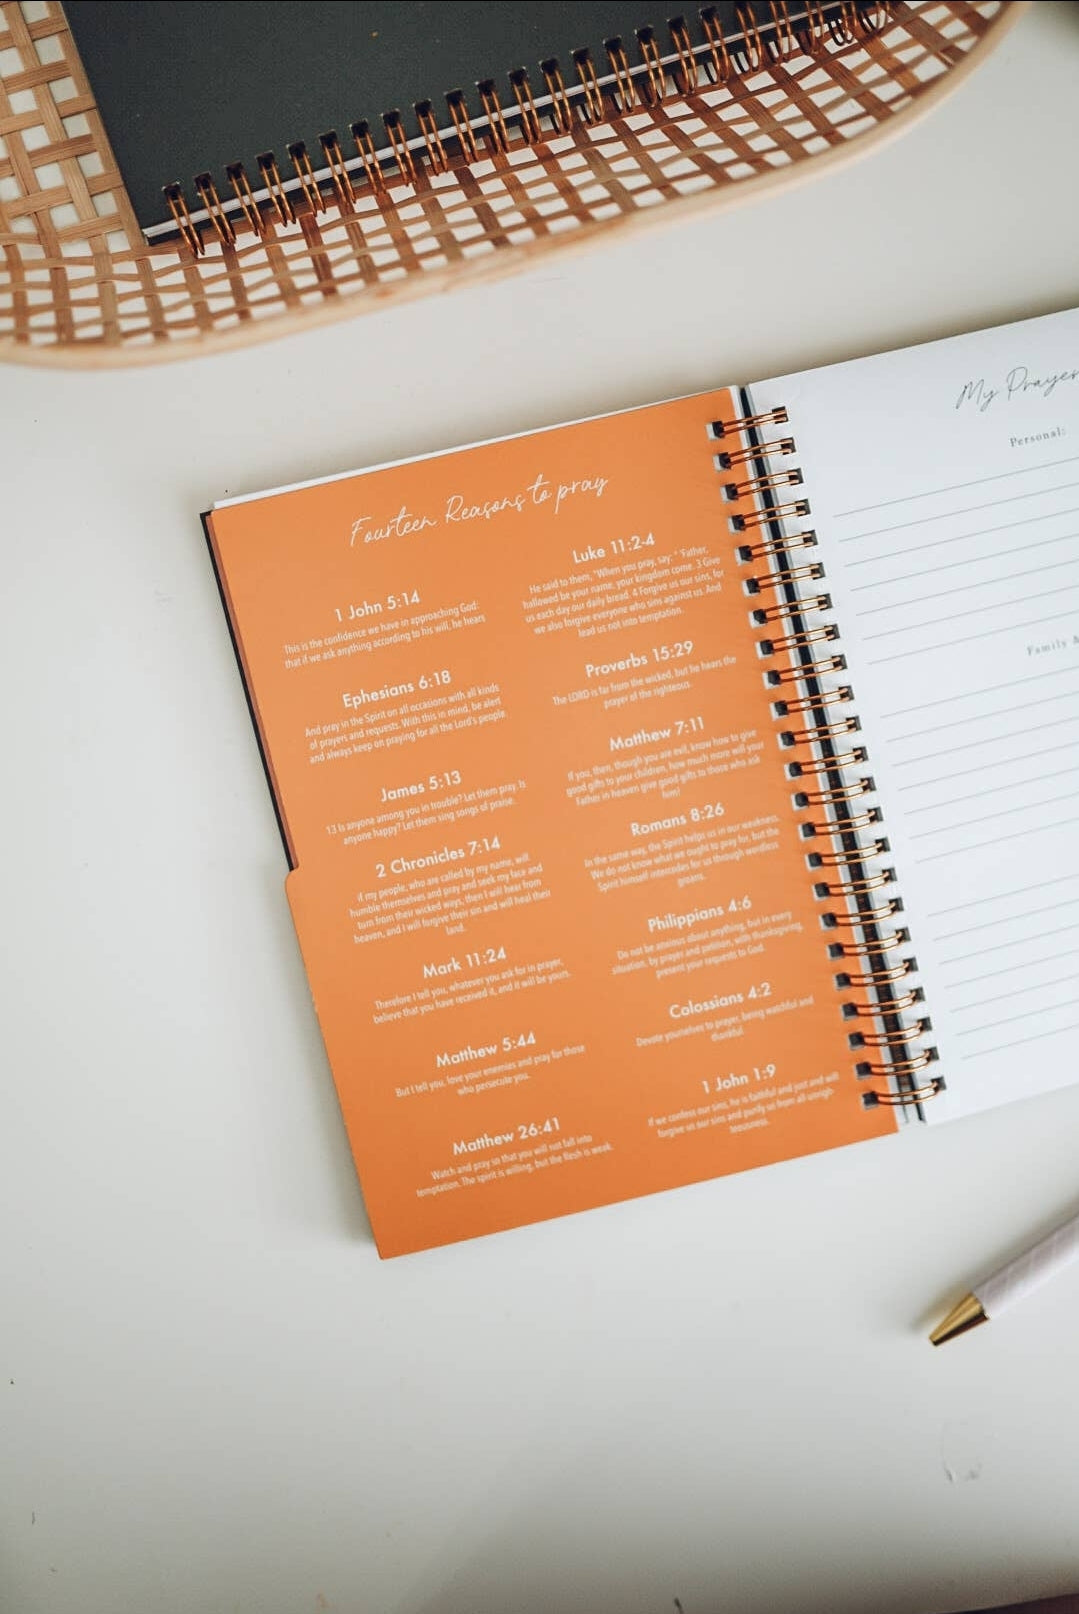 Fourteen Reasons to pray
1 John 5:14
This is the confidence we have in approaching God:
that if we ask anything according to his will, he hears
Ephesians 6:18
And pray in the Spirit on all occasions with all kinds
of prayers and requests. With this in mind, be alert
and always keep on praying for all the Lord's people
James 5:13
13 Is anyone among you in trouble? Let them pray. Is
anyone happy? Let them sing songs of praise.
2 Chronicles 7:14
if my people, who are called by my name, will
humble themselves and pray and seek my face and
turn from their wicked ways, then I will hear from
heaven, and I will forgive their sin and will heal their
land.
Mark 11:24
Therefore I tell you, whatever you ask for in prayer,
believe that you have received it, and it will be yours.
Matthew 5:44
But I tell you, love your enemies and pray for those
who persecute you.
Matthew 26:41
Watch and pray so that you will not fall into
temptation. The spirit is willing, but the flesh is weak.
Luke 11:2-4
He said to them, "When you pray, say: " 'Father,
hallowed be your name, your kingdom come. 3 Give
us each day our daily bread. 4 Forgive us our sins, for
we also forgive everyone who sins against us. And
lead us not into temptation.
Proverbs 15:29
The LORD is far from the wicked, but he hears the
prayer of the righteous.
Matthew 7:11
If you, then, though you are evil, know how to give
good gifts to your children, how much more will your
Father in heaven give good gifts to those who ask
him!
Romans 8:26
In the same way, the Spirit helps us in our weakness.
We do not know what we ought to pray for, but the
Spirit himself intercedes for us through wordless
groans.
Philippians 4:6
Do not be anxious about anything, but in every
situation, by prayer and petition, with thanksgiving,
present your requests to God.
Colossians 4:2
Devote yourselves to prayer, being watchful and
thankful.
1 John 1:9
If we confess our sins, he is faithful and just and will
forgive us our sins and purify us from all unrigh-
teousness.
My Prayer
Personal:
Family